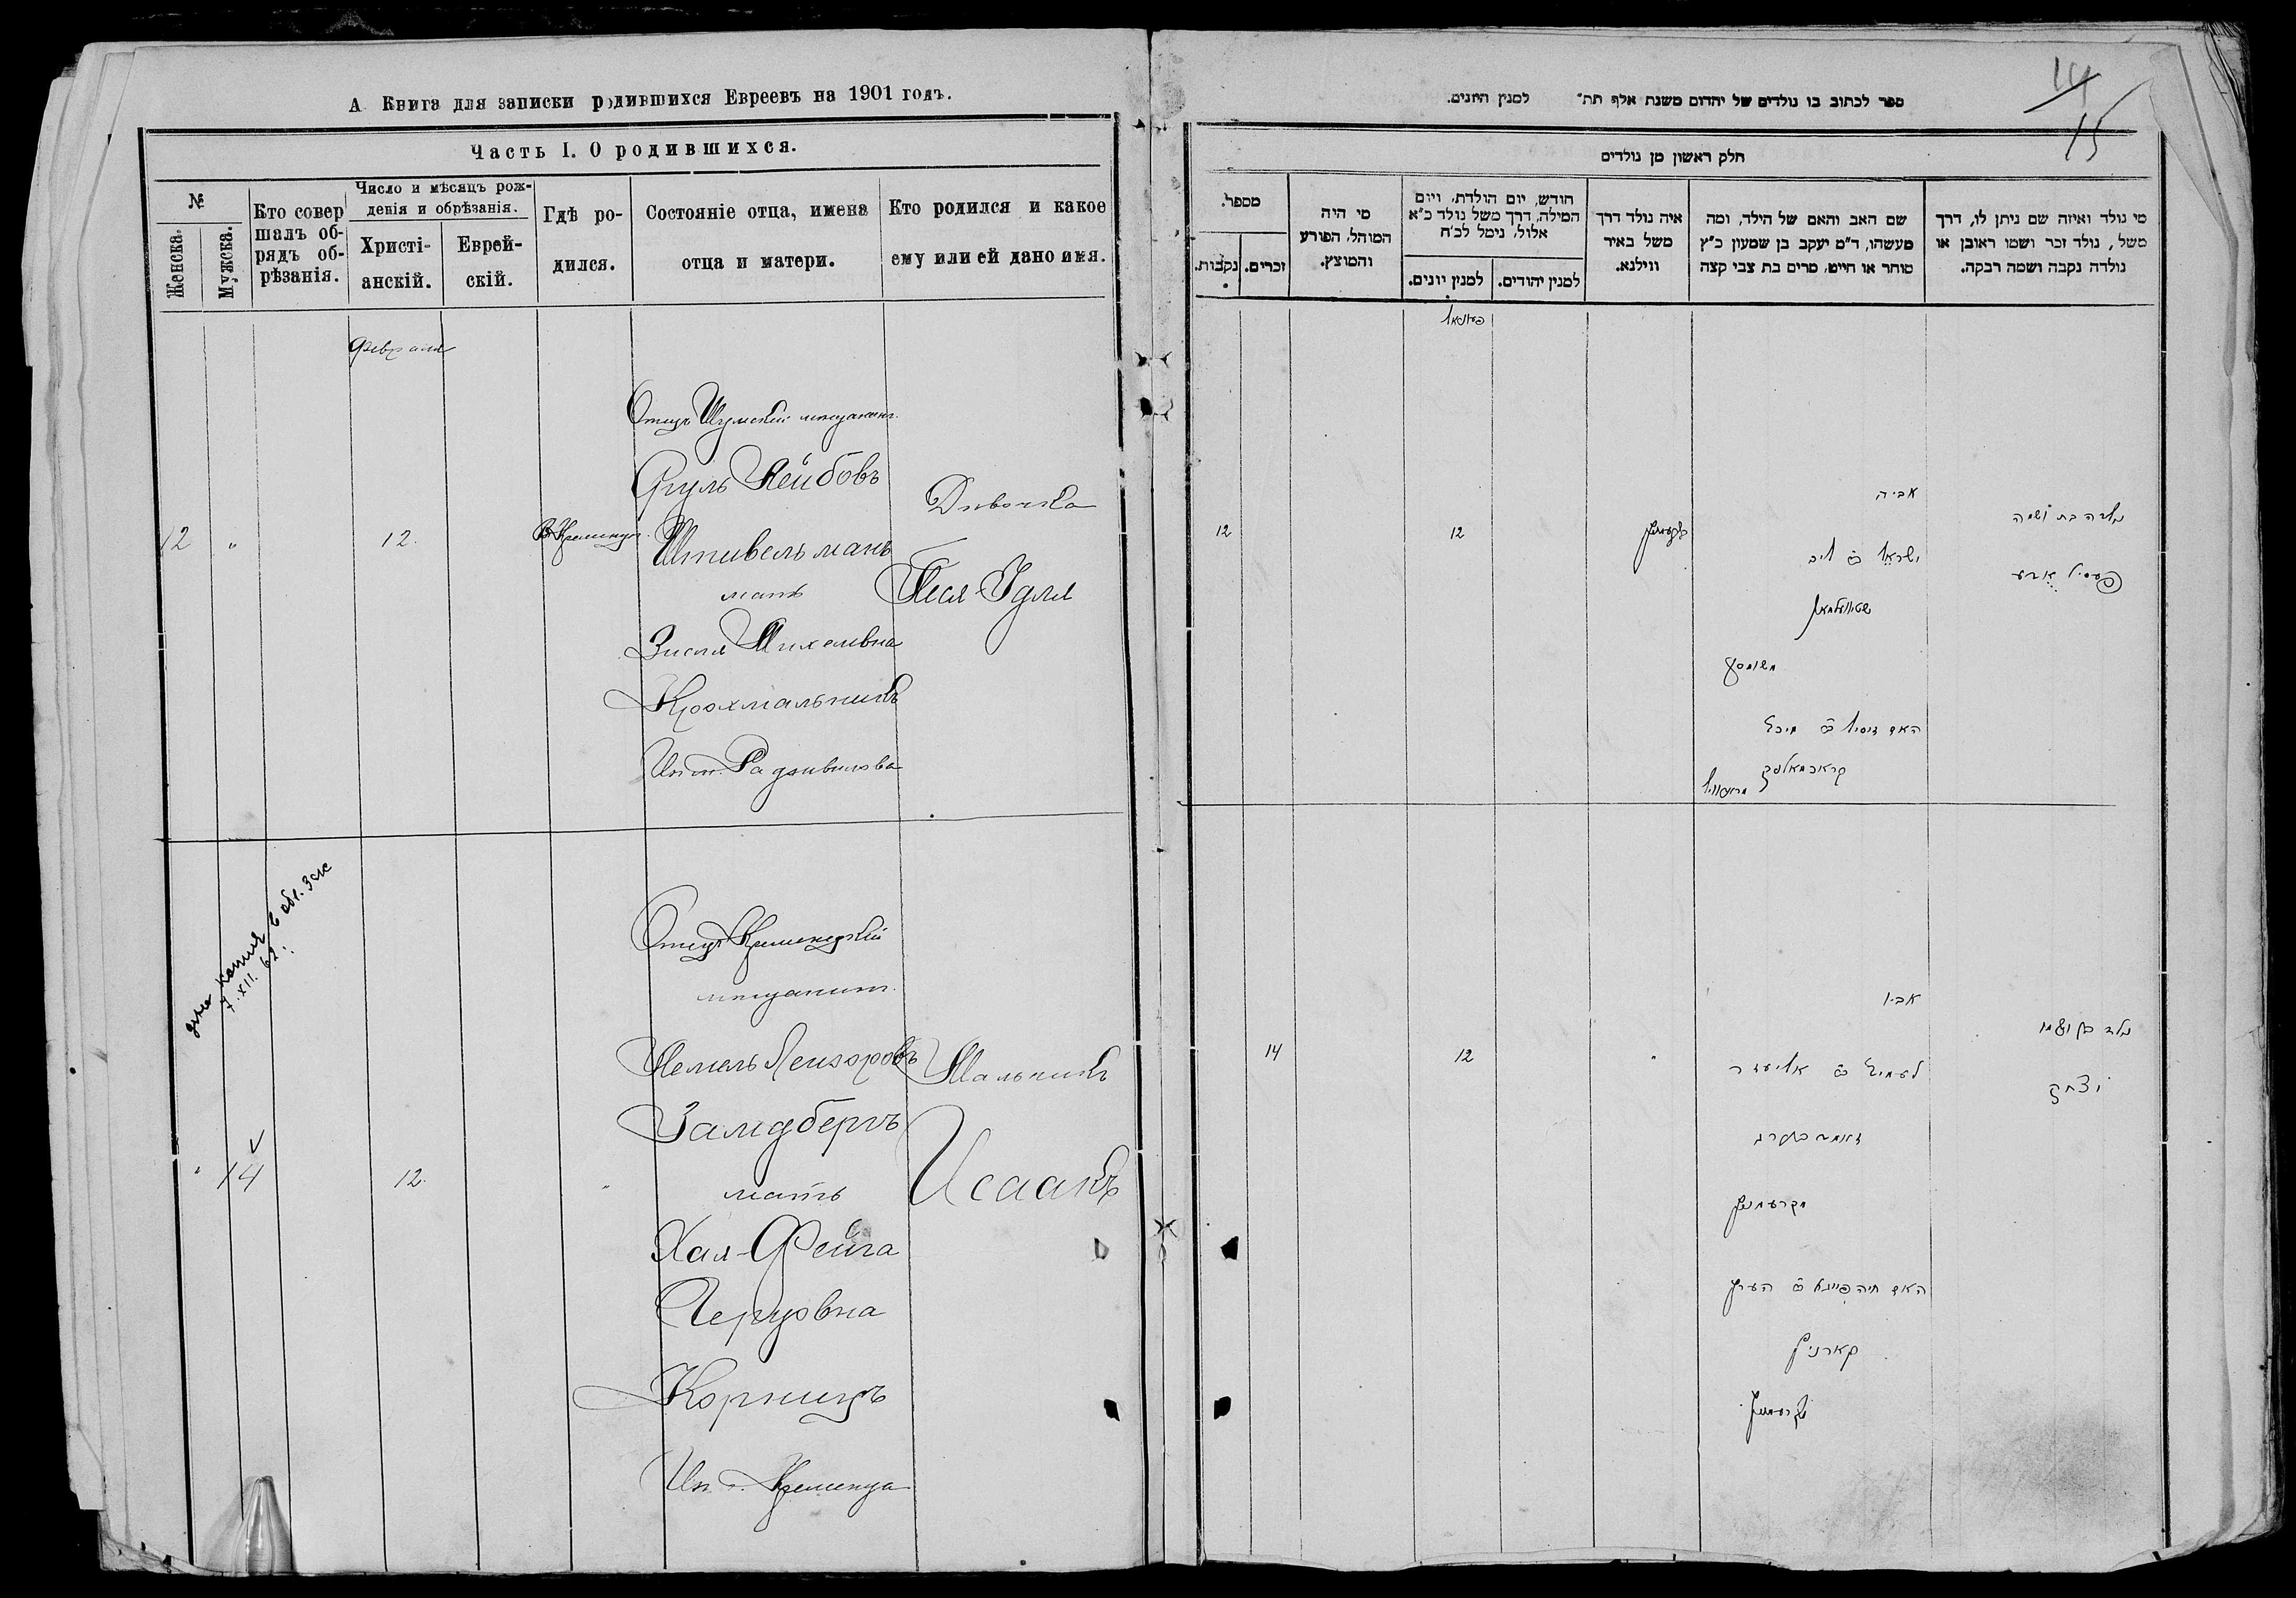 А. Книга для записки родившихся Евреевъ на 1901 годъ.
Часть I. О родившихся.
№
Женска.
Мужска.
Кто совер
шалъ об-
рядъ об-
рѣзанія.
Число и мѣсяцъ рож-
денія и обрѣзанія.
Христі-
анскій.
Еврей-
скій.
Гдѣ ро-
дился.
Состояніе отца, имена
отца и матери.
Кто родился и какое
ему или ей дано имя.
Февраля
12 " 12.
В. Кременцѣ
Отецъ Шумскій мѣщанинъ
Сруль Лейбовъ
Штивельманъ
мать
Зисля Михелевна
Крохмальникъ
Из м. Радзивилова
Дѣвочка
Песя-Идля
копія в обл. загс
7.XII.62.
" 14 12. "
Отецъ Кременецкій
мѣщанинъ
Лемель Лейзоровъ
Залцбергъ
мать
Хая-Фейга
Герцовна
Корницъ
Из г. Кременца
Мальчикъ
Исаакъ
14
15
ספר לכתוב בו נולדים של יהדום משנת אלף תת״ למנין היונים.
חלק ראשון מן נולדים
מספר.
נקבות.
זכרים.
מי היה
המוהל, הפורע
והמוצץ.
חודש, יום הולדת, ויום
המילה, דרך משל נולד כ״א
אלול, נימל לכ״ח
למנין יונים.
למנין יהודים.
איה נולד דרך
משל באיר
ווילנא.
שם האב והאם של הילד, ומה
מעשהו, ד״מ יעקב בן שמעון כ״ץ
סוחר או חייט, מרים בת צבי קצה
מי נולד ואיזה שם ניתן לו, דרך
משל, נולד זכר ושמו ראובן או
נולדה נקבה ושמה רבקה.
12 12
אביה
ישראל ב״ ליב
שטיוועלמאן
האם זיסיל ב״ מיכל
קראכמאלניק
נולדה בת ושמה
14 12 "
אביו
לעמיל ב״ אליעזר
מקרעמניץ
האם חיה פייגא ב״ הערץ
קארניץ
מקרעמניץ
נולד בן ושמו
יצחק